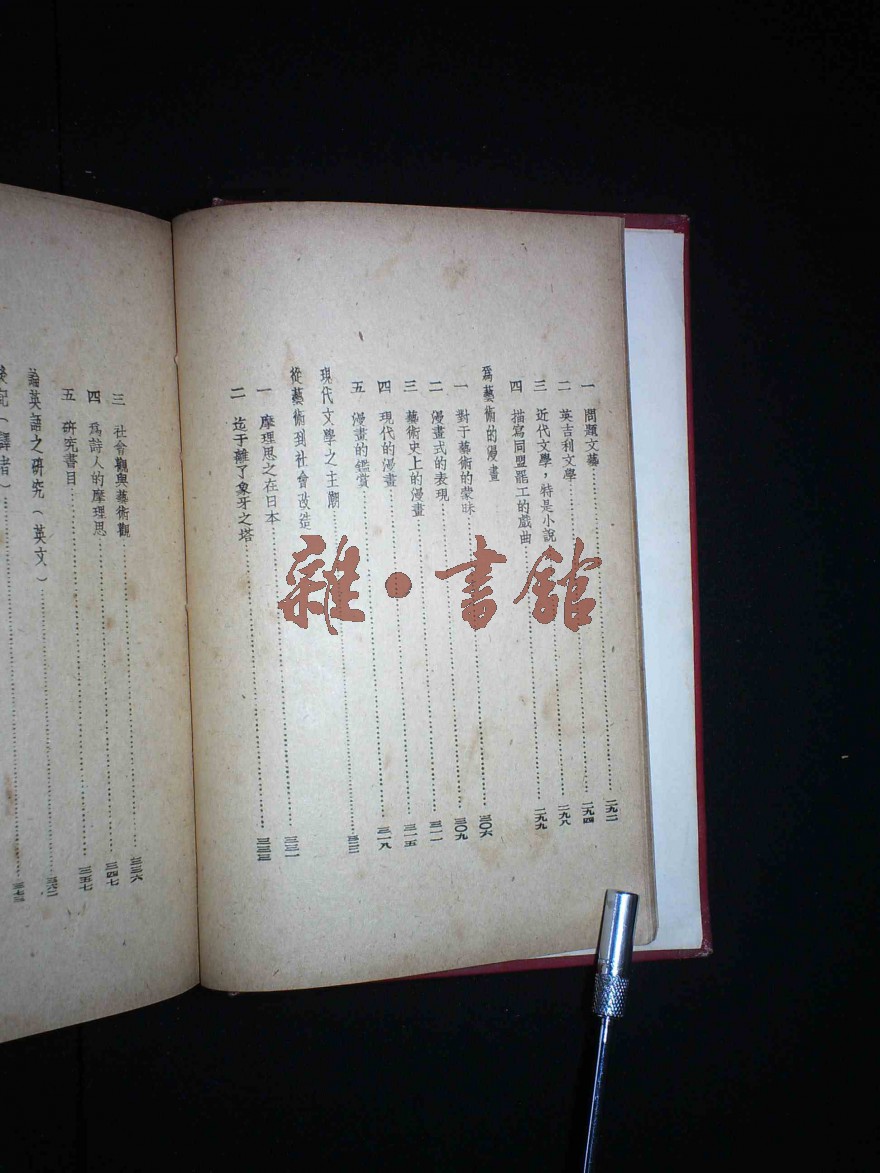 一 問題文藝……二九二
二 英吉利文學……二九四
三 近代文學，特是小說……二九八
四 描寫同盟罷工的戲曲……二九九
爲藝術的漫畫
一 對于藝術的蒙昧……三〇六
二 漫畫式的表現……三〇九
三 藝術史上的漫畫……三一一
四 現代的漫畫……三一五
五 漫畫的鑑賞……三一八
現代文學之主潮……三二三
從藝術到社會改造
一 摩理思之在日本……三三一
二 迄于離了象牙之塔……三三三
三 社會觀與藝術觀……三三六
四 爲詩人的摩理思……三四七
五 研究書目……三五七
論英語之研究（英文）……三六二
後記（譯者）……三七三
雜·書館